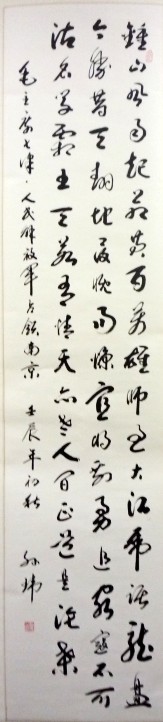 鍾山风雨起苍黄百万雄师过大江虎踞龍盘
今胜昔天翻地覆慨而慷宜将剩勇追穷寇不可
沽名学霸王天若有情天亦老人间正道是沧桑
毛主席七律·人民解放军占领南京 壬辰年初秋 孙炜